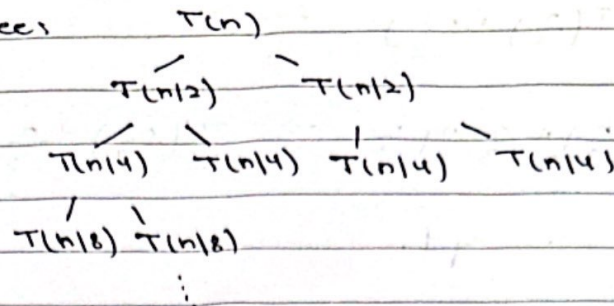 ee: T(n)
T(n/2) T(n/2)
T(n/4) T(n/4) T(n/4) T(n/4)
T(n/8) T(n/8)
⋮